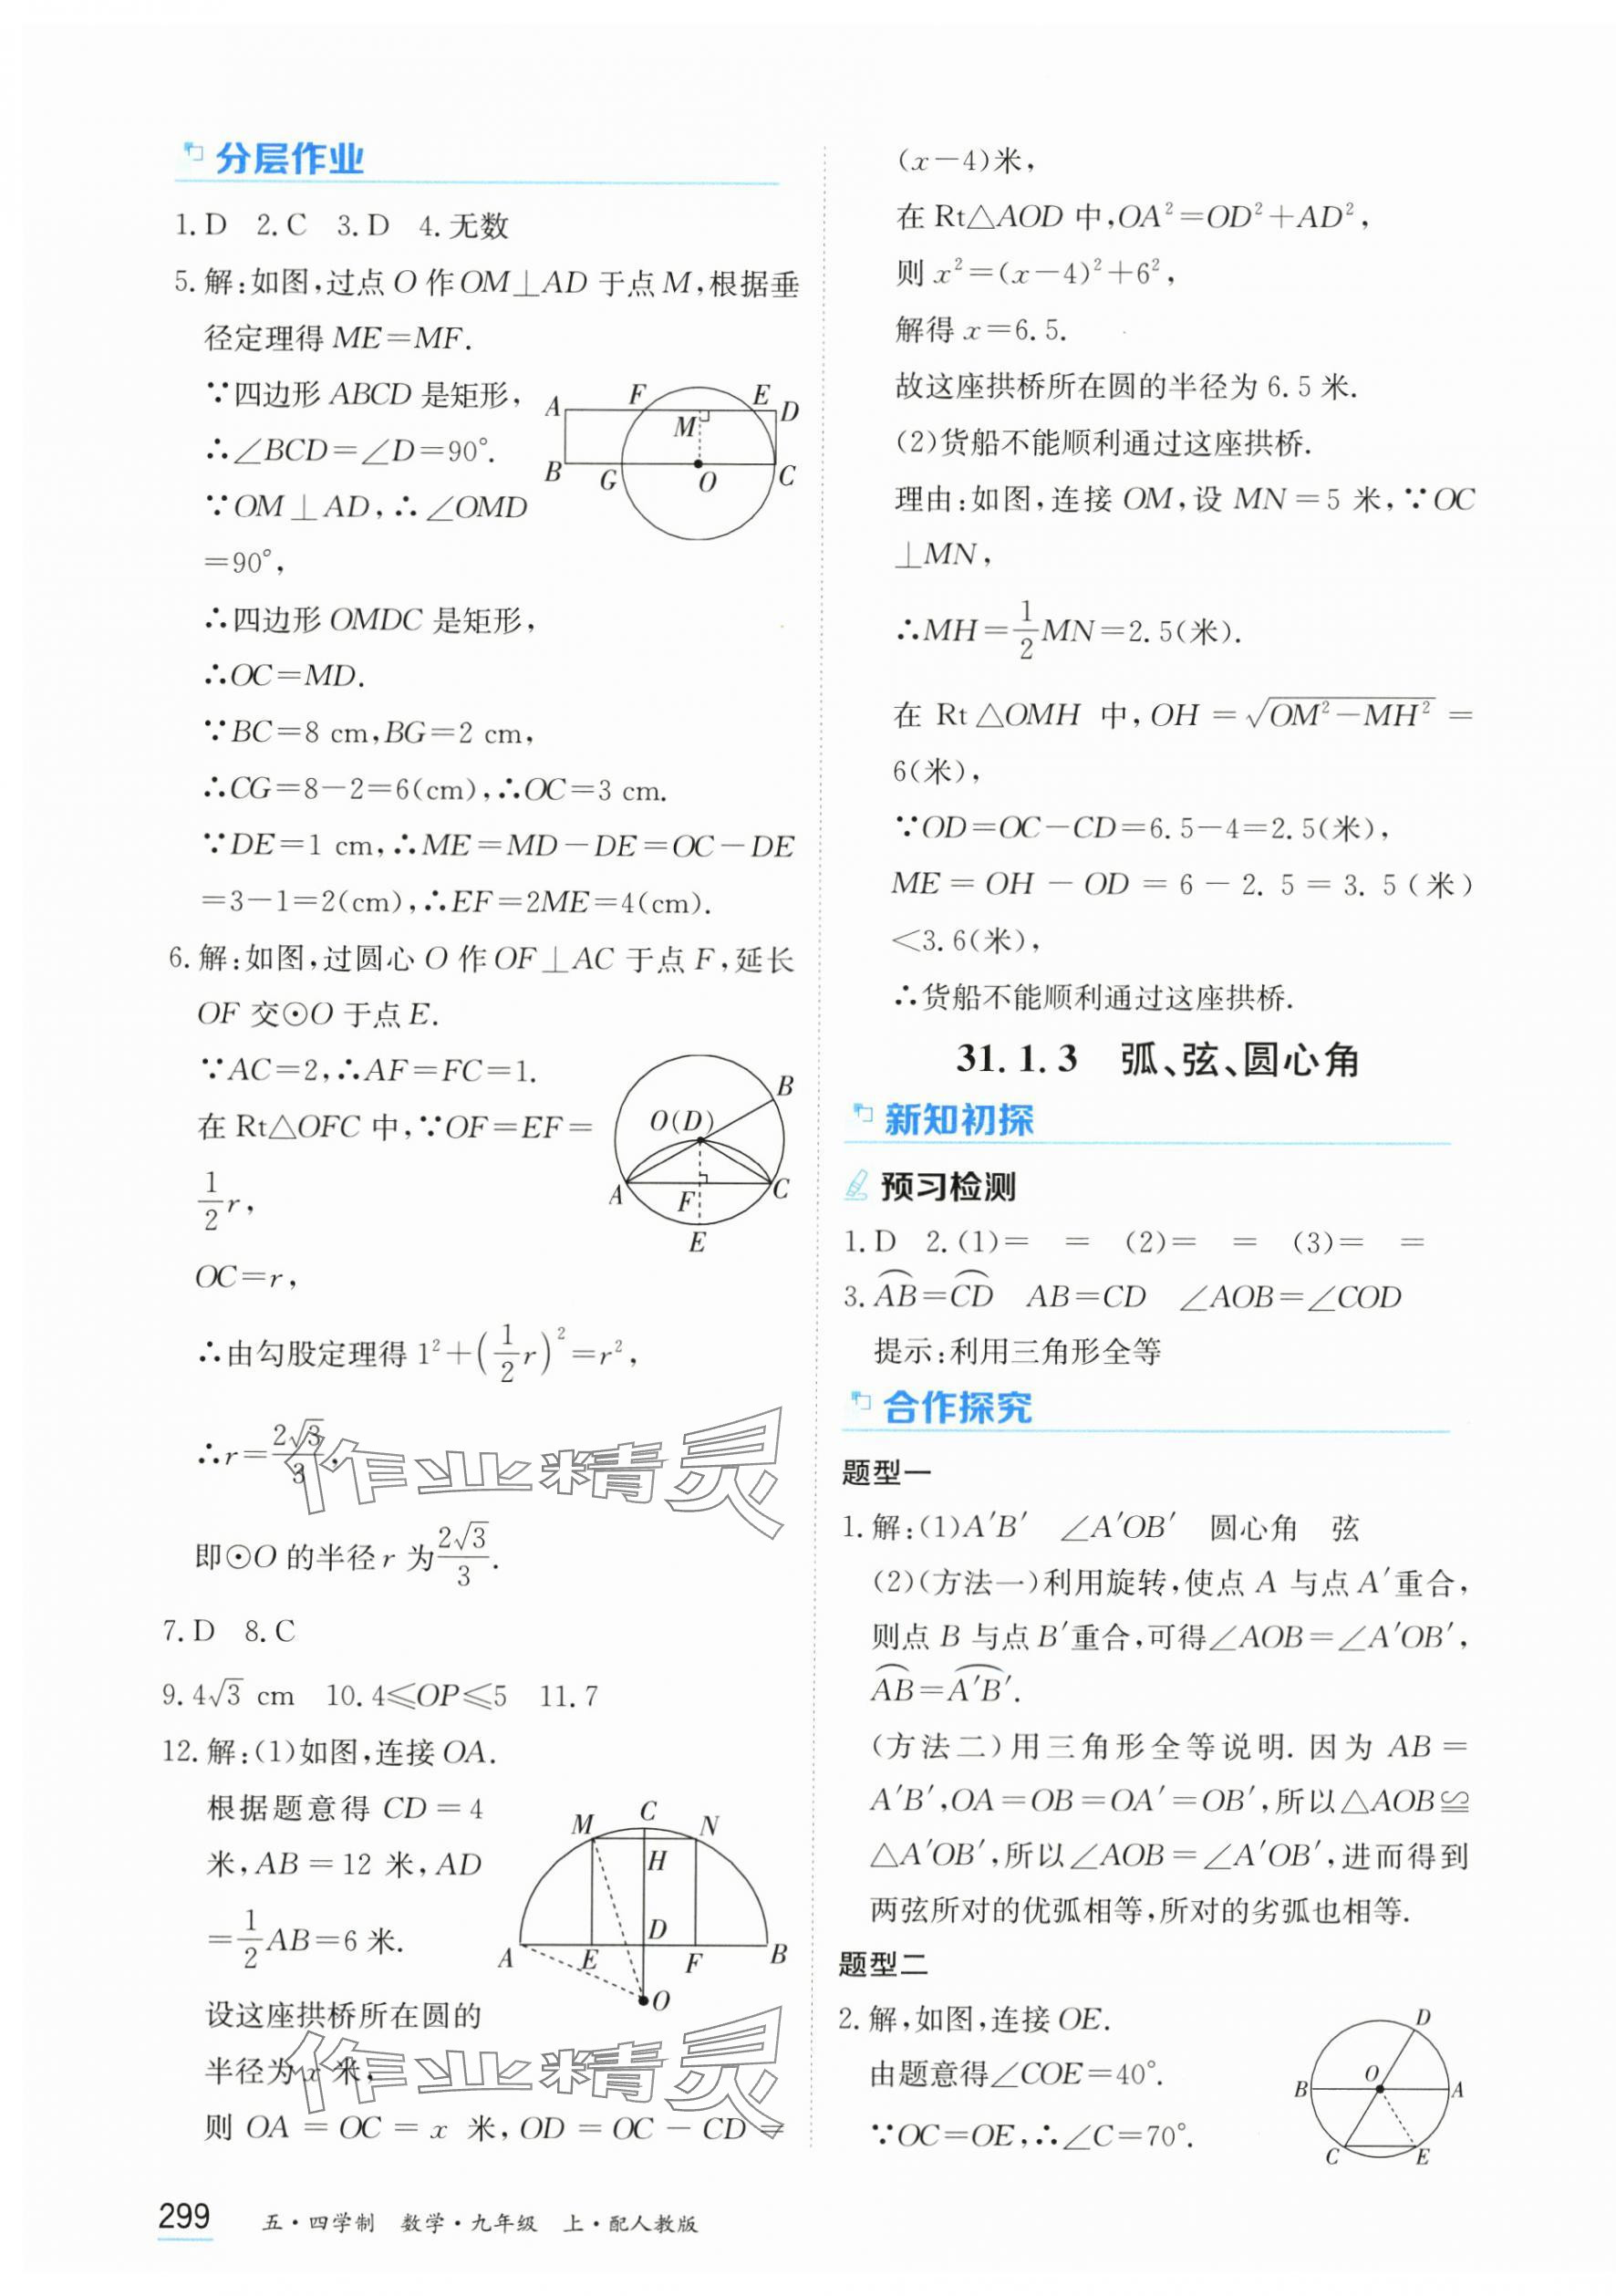 分层作业
1.D 2.C 3.D 4.无数
5.解:如图,过点O作OM⊥AD于点M,根据垂
径定理得ME=MF.
∵四边形ABCD是矩形,
∴∠BCD=∠D=90°.
∵OM⊥AD,∴∠OMD
=90°,
A F E D
M
B G O C
∴四边形OMDC是矩形,
∴OC=MD.
∵BC=8 cm,BG=2 cm,
∴CG=8-2=6(cm),∴OC=3 cm.
∵DE=1 cm,∴ME=MD-DE=OC-DE
=3-1=2(cm),∴EF=2ME=4(cm).
6.解:如图,过圆心O作OF⊥AC于点F,延长
OF交⊙O于点E.
∵AC=2,∴AF=FC=1.
在Rt△OFC中,∵OF=EF=
1/2 r,
OC=r,
B
O(D)
A F C
E
∴由勾股定理得1²+(1/2 r)²=r²,
∴r=2√3/3,
即⊙O的半径r为2√3/3.
7.D 8.C
9.4√3 cm 10.4≤OP≤5 11.7
12.解:(1)如图,连接OA.
根据题意得CD=4
米,AB=12米,AD
=1/2 AB=6米.
设这座拱桥所在圆的
半径为x米,
则OA=OC=x米,OD=OC-CD=
M C N
H
D
A E F B
O
作业精灵
作业精灵
299 五·四学制 数学·九年级 上·配人教版
(x-4)米,
在Rt△AOD中,OA²=OD²+AD²,
则x²=(x-4)²+6²,
解得x=6.5.
故这座拱桥所在圆的半径为6.5米.
(2)货船不能顺利通过这座拱桥.
理由:如图,连接OM,设MN=5米,∵OC
⊥MN,
∴MH=1/2 MN=2.5(米).
在Rt△OMH中,OH=√(OM²-MH²)=
6(米),
∵OD=OC-CD=6.5-4=2.5(米),
ME=OH-OD=6-2.5=3.5(米)
<3.6(米),
∴货船不能顺利通过这座拱桥.
31.1.3 弧、弦、圆心角
新知初探
预习检测
1.D 2.(1)= = (2)= = (3)= =
3.⌒AB=⌒CD AB=CD ∠AOB=∠COD
提示:利用三角形全等
合作探究
题型一
1.解:(1)A′B′ ∠A′OB′ 圆心角 弦
(2)(方法一)利用旋转,使点A与点A′重合,
则点B与点B′重合,可得∠AOB=∠A′OB′,
⌒AB=⌒A′B′.
(方法二)用三角形全等说明.因为AB=
A′B′,OA=OB=OA′=OB′,所以△AOB≌
△A′OB′,所以∠AOB=∠A′OB′,进而得到
两弦所对的优弧相等,所对的劣弧也相等.
题型二
2.解,如图,连接OE.
由题意得∠COE=40°.
∵OC=OE,∴∠C=70°.
D
B O A
C E